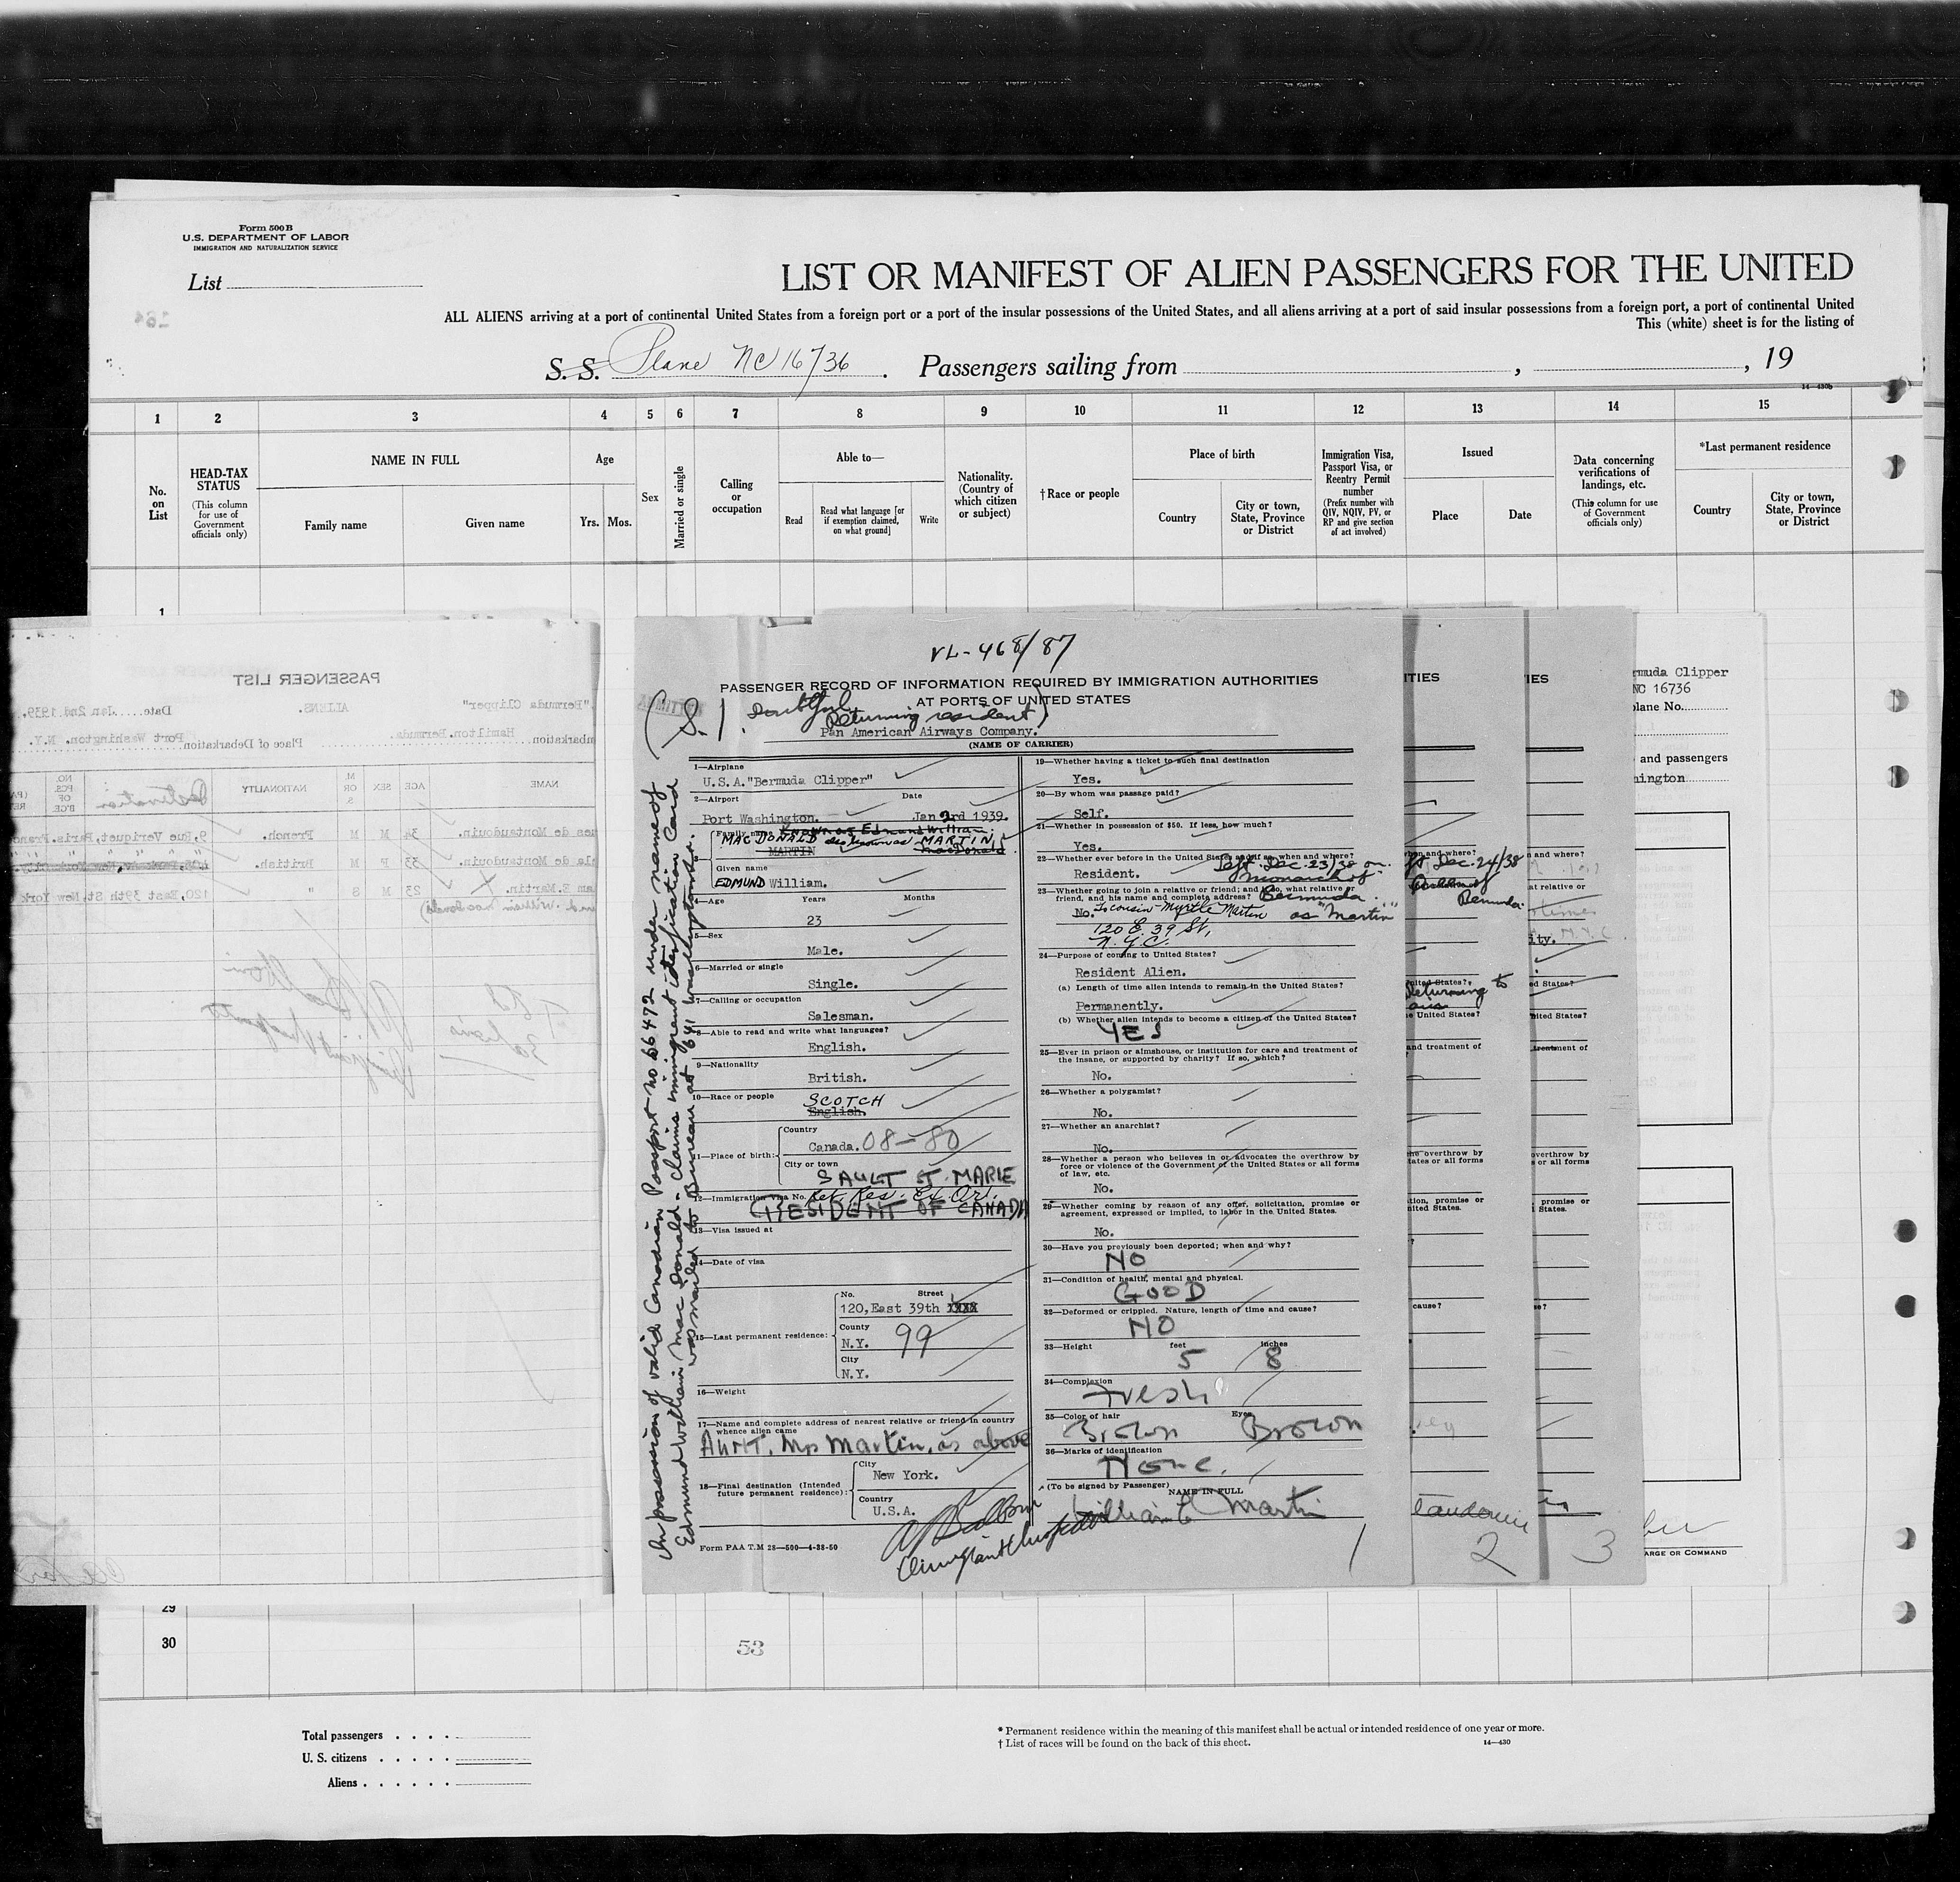 Form 500 B
U.S. DEPARTMENT OF LABOR
IMMIGRATION AND NATURALIZATION SERVICE
List
LIST OR MANIFEST OF ALIEN PASSENGERS FOR THE UNITED
ALL ALIENS arriving at a port of continental United States from a foreign port or a port of the insular possessions of the United States, and all aliens arriving at a port of said insular possessions from a foreign port, a port of continental United
This (white) sheet is for the listing of
S. S. Plane NC 16736 . Passengers sailing from , , 19
14—430b
1 2 3 4 5 6 7 8 9 10 11 12 13 14 15
No. on List
HEAD-TAX STATUS
(This column for use of Government officials only)
NAME IN FULL
Family name
Given name
Age
Yrs. Mos.
Sex
Married or single
Calling or occupation
Able to—
Read
Read what language [or if exemption claimed, on what ground]
Write
Nationality. (Country of which citizen or subject)
†Race or people
Place of birth
Country
City or town, State, Province or District
Immigration Visa, Passport Visa, or Reentry Permit number
(Prefix number with QIV, NQIV, PV, or RP and give section of act involved)
Issued
Place
Date
Data concerning verifications of landings, etc.
(This column for use of Government officials only)
*Last permanent residence
Country
City or town, State, Province or District
1
PASSENGER LIST
"Bermuda Clipper" ALIENS. Date.....Jan 2nd 1939.
Hamilton.Bermuda. Place of Debarkation Port Washington. N.Y.
NAME AGE SEX M OR S NATIONALITY Destination NO. PCS. OF B'G'E.
de Montaudouin. 34 M M French. 9,Rue Veriquet.Paris.
de Montaudouin. 33 F M British.
am E.Martin. 23 M S " 120,East 39th St.New York
VL-468/87
PASSENGER RECORD OF INFORMATION REQUIRED BY IMMIGRATION AUTHORITIES
AT PORTS OF UNITED STATES
ADMITTED
(S.I. Doubtful
Returning resident)
Pan American Airways Company.
(NAME OF CARRIER)
1—Airplane
U.S.A."Bermuda Clipper"
2—Airport Date
Port Washington. Jan 2nd 1939.
Family name Known as Edmund William.
MAC DONALD also known as MARTIN
MARTIN MacDonald
Given name
EDMUND William.
4—Age Years Months
23
5—Sex
Male.
6—Married or single
Single.
7—Calling or occupation
Salesman.
8—Able to read and write what languages?
English.
9—Nationality
British.
10—Race or people
SCOTCH
English.
11—Place of birth:
Country
Canada. 08-80
City or town
SAULT ST. MARIE
12—Immigration Visa No. Ret. Res. Ex. Or.
RESIDENT OF CANADA
13—Visa issued at
14—Date of visa
15—Last permanent residence:
No. Street
120,East 39th XXXX
County
N.Y. 99
City
N.Y.
16—Weight
17—Name and complete address of nearest relative or friend in country
whence alien came
AUNT. Mrs Martin, as above
18—Final destination (Intended
future permanent residence):
City
New York.
Country
U.S.A.
Form PAA T.M 28—500—4-38-50
Immigrant Inspector
19—Whether having a ticket to such final destination
Yes.
20—By whom was passage paid?
Self.
21—Whether in possession of $50. If less, how much?
Yes.
22—Whether ever before in the United States and if so, when and where?
Resident. Left Dec. 23/38 on
Monarch of
Bermuda
23—Whether going to join a relative or friend; and if so, what relative or
friend, and his name and complete address?
No. To cousin Myrtle Martin as "Martin"
120 E. 39 St,
N.Y.C.
24—Purpose of coming to United States?
Resident Alien.
(a) Length of time alien intends to remain in the United States?
Permanently.
(b) Whether alien intends to become a citizen of the United States?
YES
25—Ever in prison or almshouse, or institution for care and treatment of
the insane, or supported by charity? If so, which?
No.
26—Whether a polygamist?
No.
27—Whether an anarchist?
No.
28—Whether a person who believes in or advocates the overthrow by
force or violence of the Government of the United States or all forms
of law, etc.
No.
29—Whether coming by reason of any offer, solicitation, promise or
agreement, expressed or implied, to labor in the United States.
No.
30—Have you previously been deported; when and why?
NO
31—Condition of health, mental and physical.
GOOD
32—Deformed or crippled. Nature, length of time and cause?
NO
33—Height feet inches
5 8
34—Complexion
Fresh
35—Color of hair Eyes
Brown Brown
36—Marks of identification
None.
(To be signed by Passenger) NAME IN FULL
William E Martin
1
In possession of valid Canadian Passport no 66472 under name of
Edmund William Mac Donald - claims immigrant identification card
was mailed to Bureau at Washington.
2
3
Bermuda Clipper
NC 16736
plane No.
and passengers
CHARGE OR COMMAND
29
30
53
Total passengers
U. S. citizens
Aliens
* Permanent residence within the meaning of this manifest shall be actual or intended residence of one year or more.
† List of races will be found on the back of this sheet.
14—430